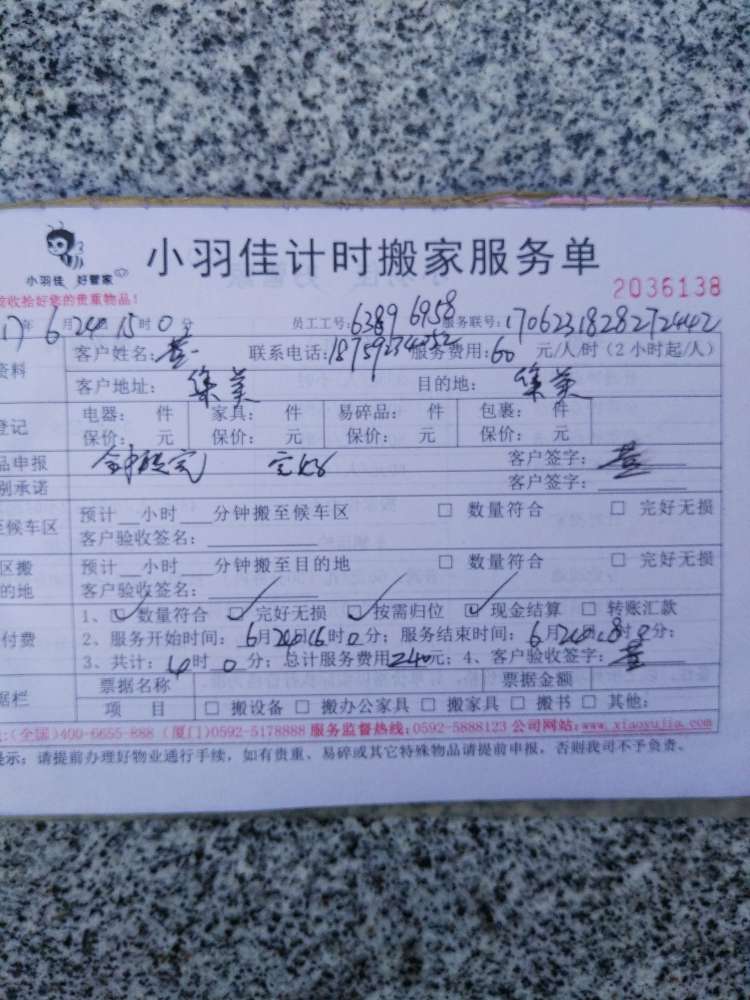 小羽佳 好管家
小羽佳计时搬家服务单
验收拾好您的贵重物品！
2036138
17年6月24日15时0分 员工工号：6389 6958 服务联号：1706231828272442
资料 客户姓名： 联系电话： 服务费用：60元/人/时（2小时起/人）
客户地址：集美 目的地：集美
登记 电器： 件 家具： 件 易碎品： 件 包裹： 件
保价： 元 保价： 元 保价： 元 保价： 元
品申报 完好 客户签字：
别承诺 客户签字：
至候车区 预计__小时___分钟搬至候车区 □ 数量符合 □ 完好无损
客户验收签名：
区搬 预计__小时___分钟搬至目的地 □ 数量符合 □ 完好无损
的地 客户验收签名：
1、☑数量符合 ☑完好无损 ☑按需归位 ☑现金结算 □ 转账汇款
付费 2、服务开始时间：6月24日16时0分；服务结束时间：6月24日18时0分；
3、共计：4时0分；总计服务费用240元；4、客户验收签字：
据栏 票据名称 票据金额
项 目 □ 搬设备 □ 搬办公家具 □ 搬家具 □ 搬书 □ 其他：
:(全国)400-6655-888 (厦门)0592-5178888 服务监督热线：0592-5888123 公司网站：www.xiaoyujia.com
提示：请提前办理好物业通行手续，如有贵重、易碎或其它特殊物品请提前申报，否则我司不予负责。